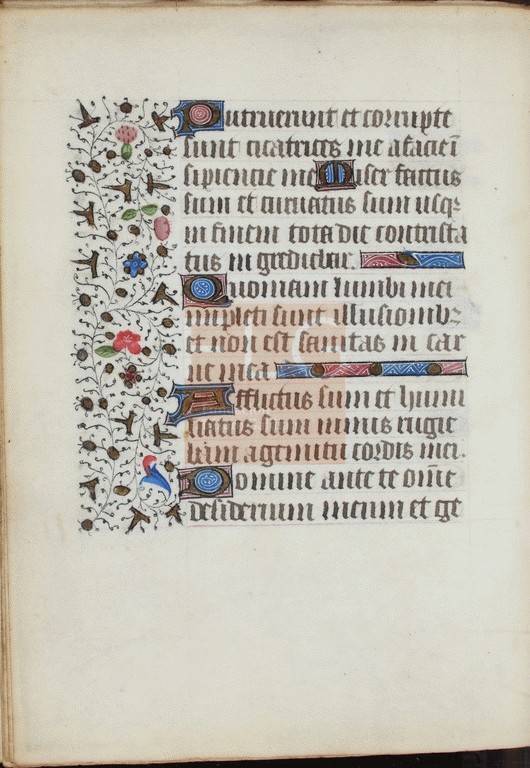 Putruerunt et corrupte
sunt cicatrices me a facieı̄
sipiencie me Miser factus
sum et curuatus sum usqꝫ
in finem tota die contrista
tus ingrediebar.
Quoniam lumbi mei
impleti sunt illusionibꝫ
et non est sanitas in car
ne mea
Afflictus sum et humi
liatus sum nimis rugie
bam a gemitu cordis mei.
Domine ante te om̄e
desiderium meum et ge